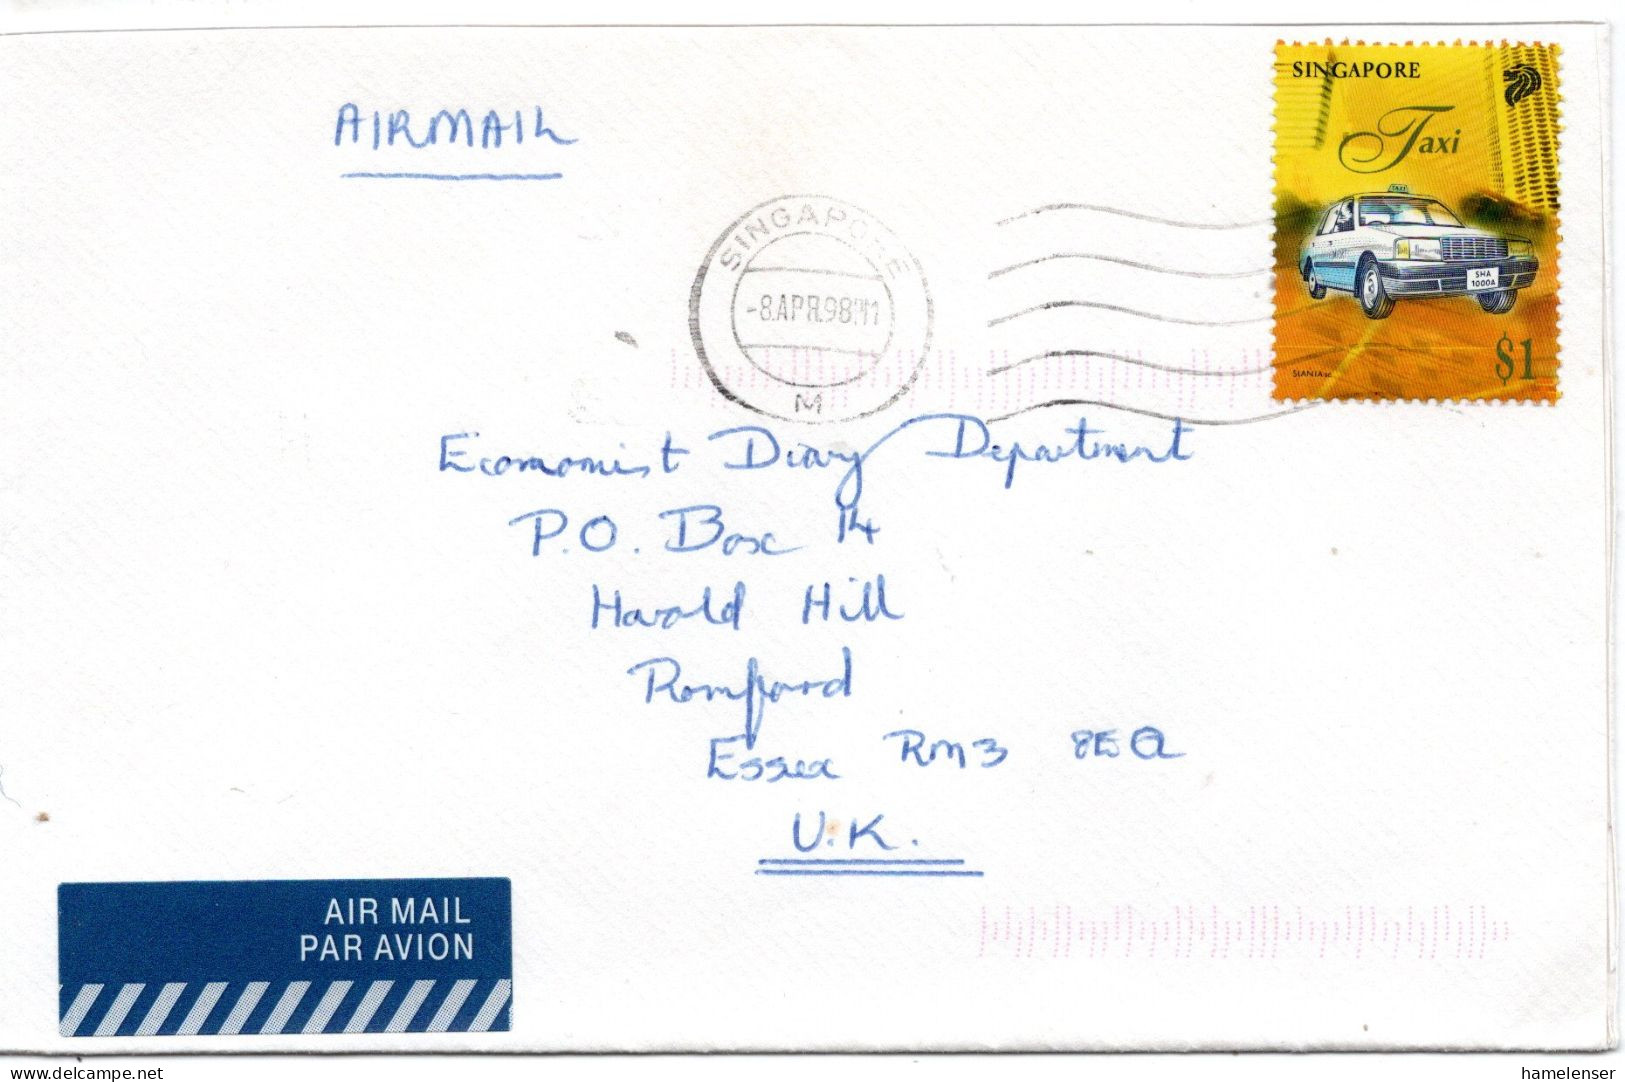 AIRMAIL
SINGAPORE
Taxi
TAXI
SHA
1000A
$1
SINGAPORE
-8.APR.98
M
Economist Diary Department
P.O. Box 14
Harold Hill
Romford
Essex RM3 8EQ
U.K.
AIR MAIL
PAR AVION
delcampe.net
hamelenser